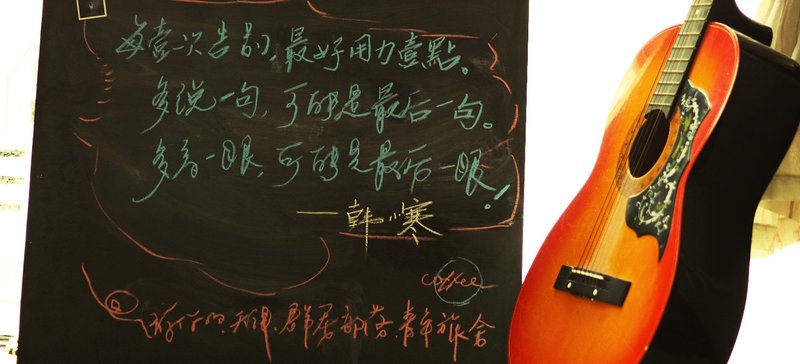 每壹一次告别，最好用力壹點。
多说一句，可能是最后一句。
多看一眼，可能是最后一眼！
一韩寒
群居部落·青年旅舍